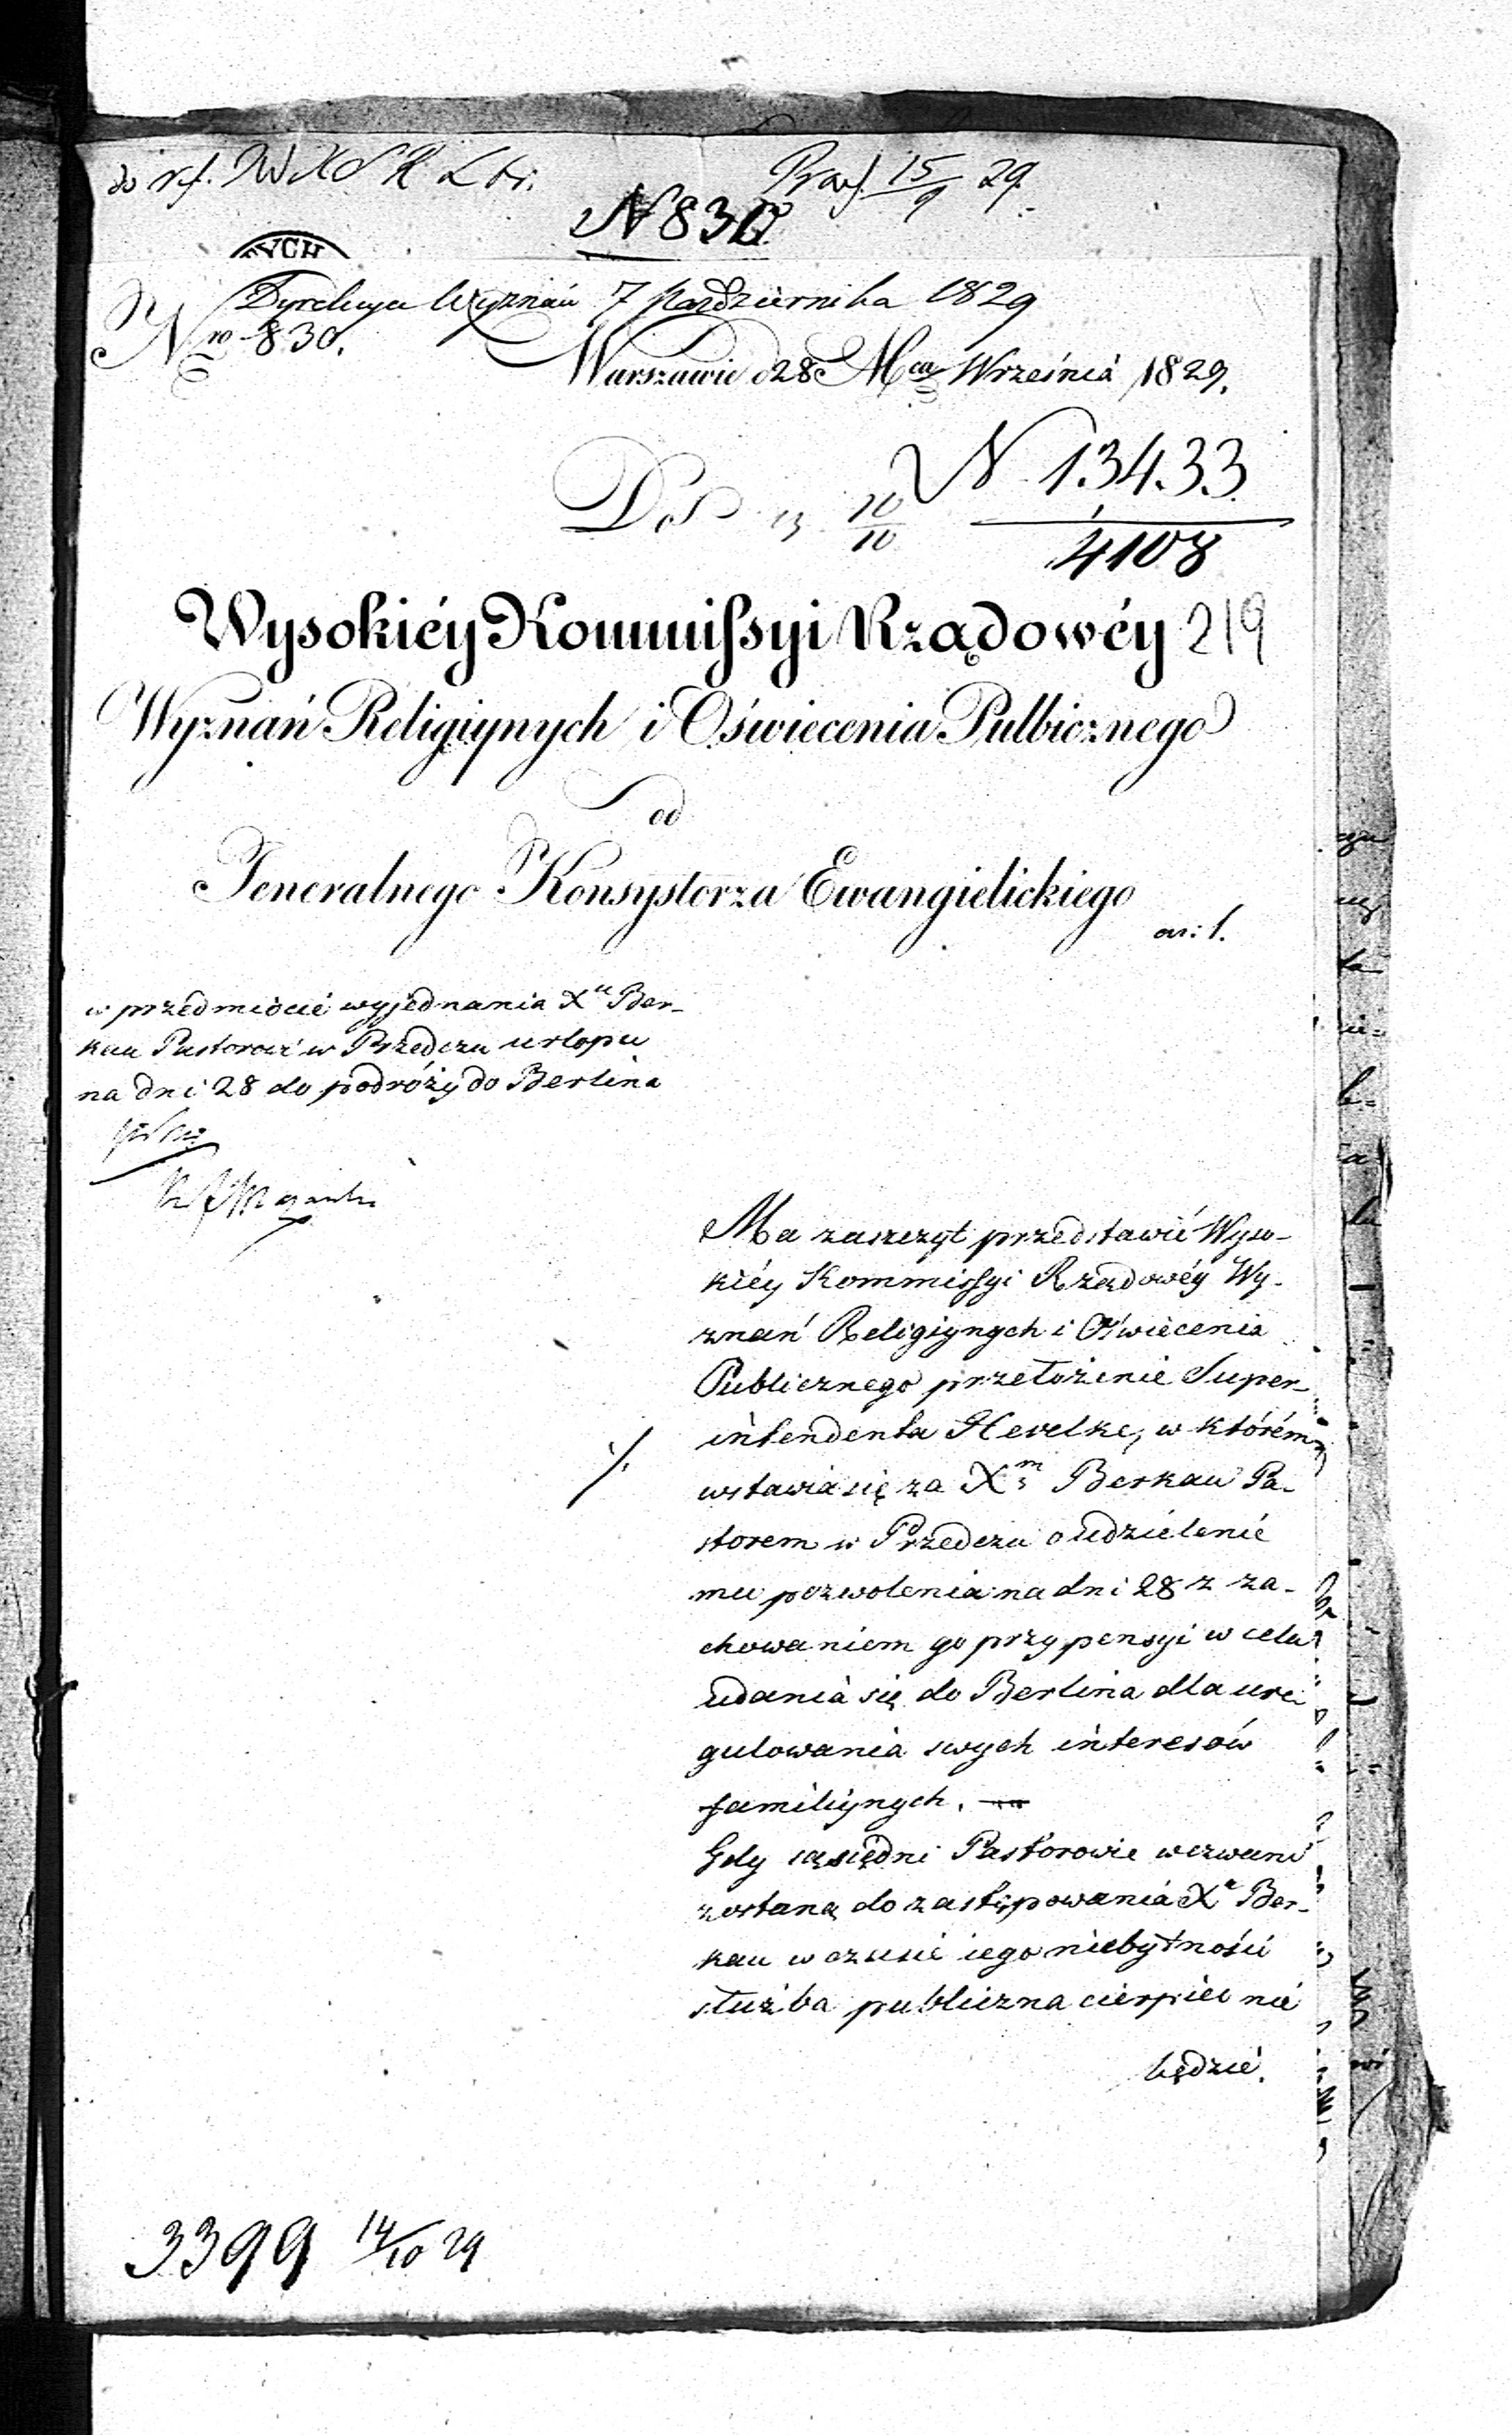 do ref.
Praes. 15/9 29.
N 830
YCH
Dyrekcya Wyznań 7 Października 1829
Nro 830.
Warszawie d 28 Mca Września 1829.
N 13433
Do 10/10
4108
Wysokiéy Kommissyi Rządowéy 219
Wyznań Religiynych i Oświecenia Pulbicznego
od
Jeneralnego Konsystorza Ewangielickiego
w przedmiocie wyjednania Xu Ber-
kau Pastorowi w Przedczu urlopu
na dni 28 do podróży do Berlina
Ma zaszczyt przedstawić Wyso-
kiéy Kommissyi Rządowéy Wy-
znań Religiynych i Oświecenia
Publicznego przełożenie Super-
intendenta Hevelke, w którém
wstawia się za Xm Berkau Pa-
storem w Przedczu o udzielenie
mu pozwolenia na dni 28 z za-
chowaniem go przy pensyi w celu
udania się do Berlina dla ure-
gulowania swych interesów
familiynych. —
Gdy sąsiedni Pastorowie wezwani
zostaną do zastępowania Xa Ber-
kau w czasie iego niebytności
służba publiczna cierpieć nie
będzie.
3399 14/10 29